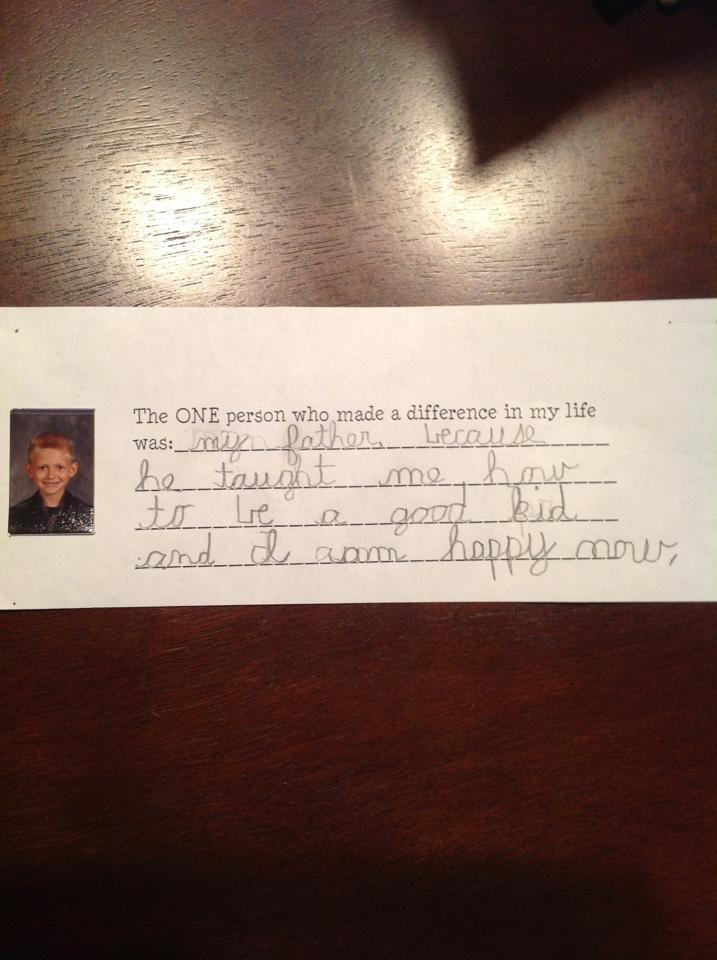 The ONE person who made a difference in my life
was: my father, because
he taught me how
to be a good kid
and I am happy now,